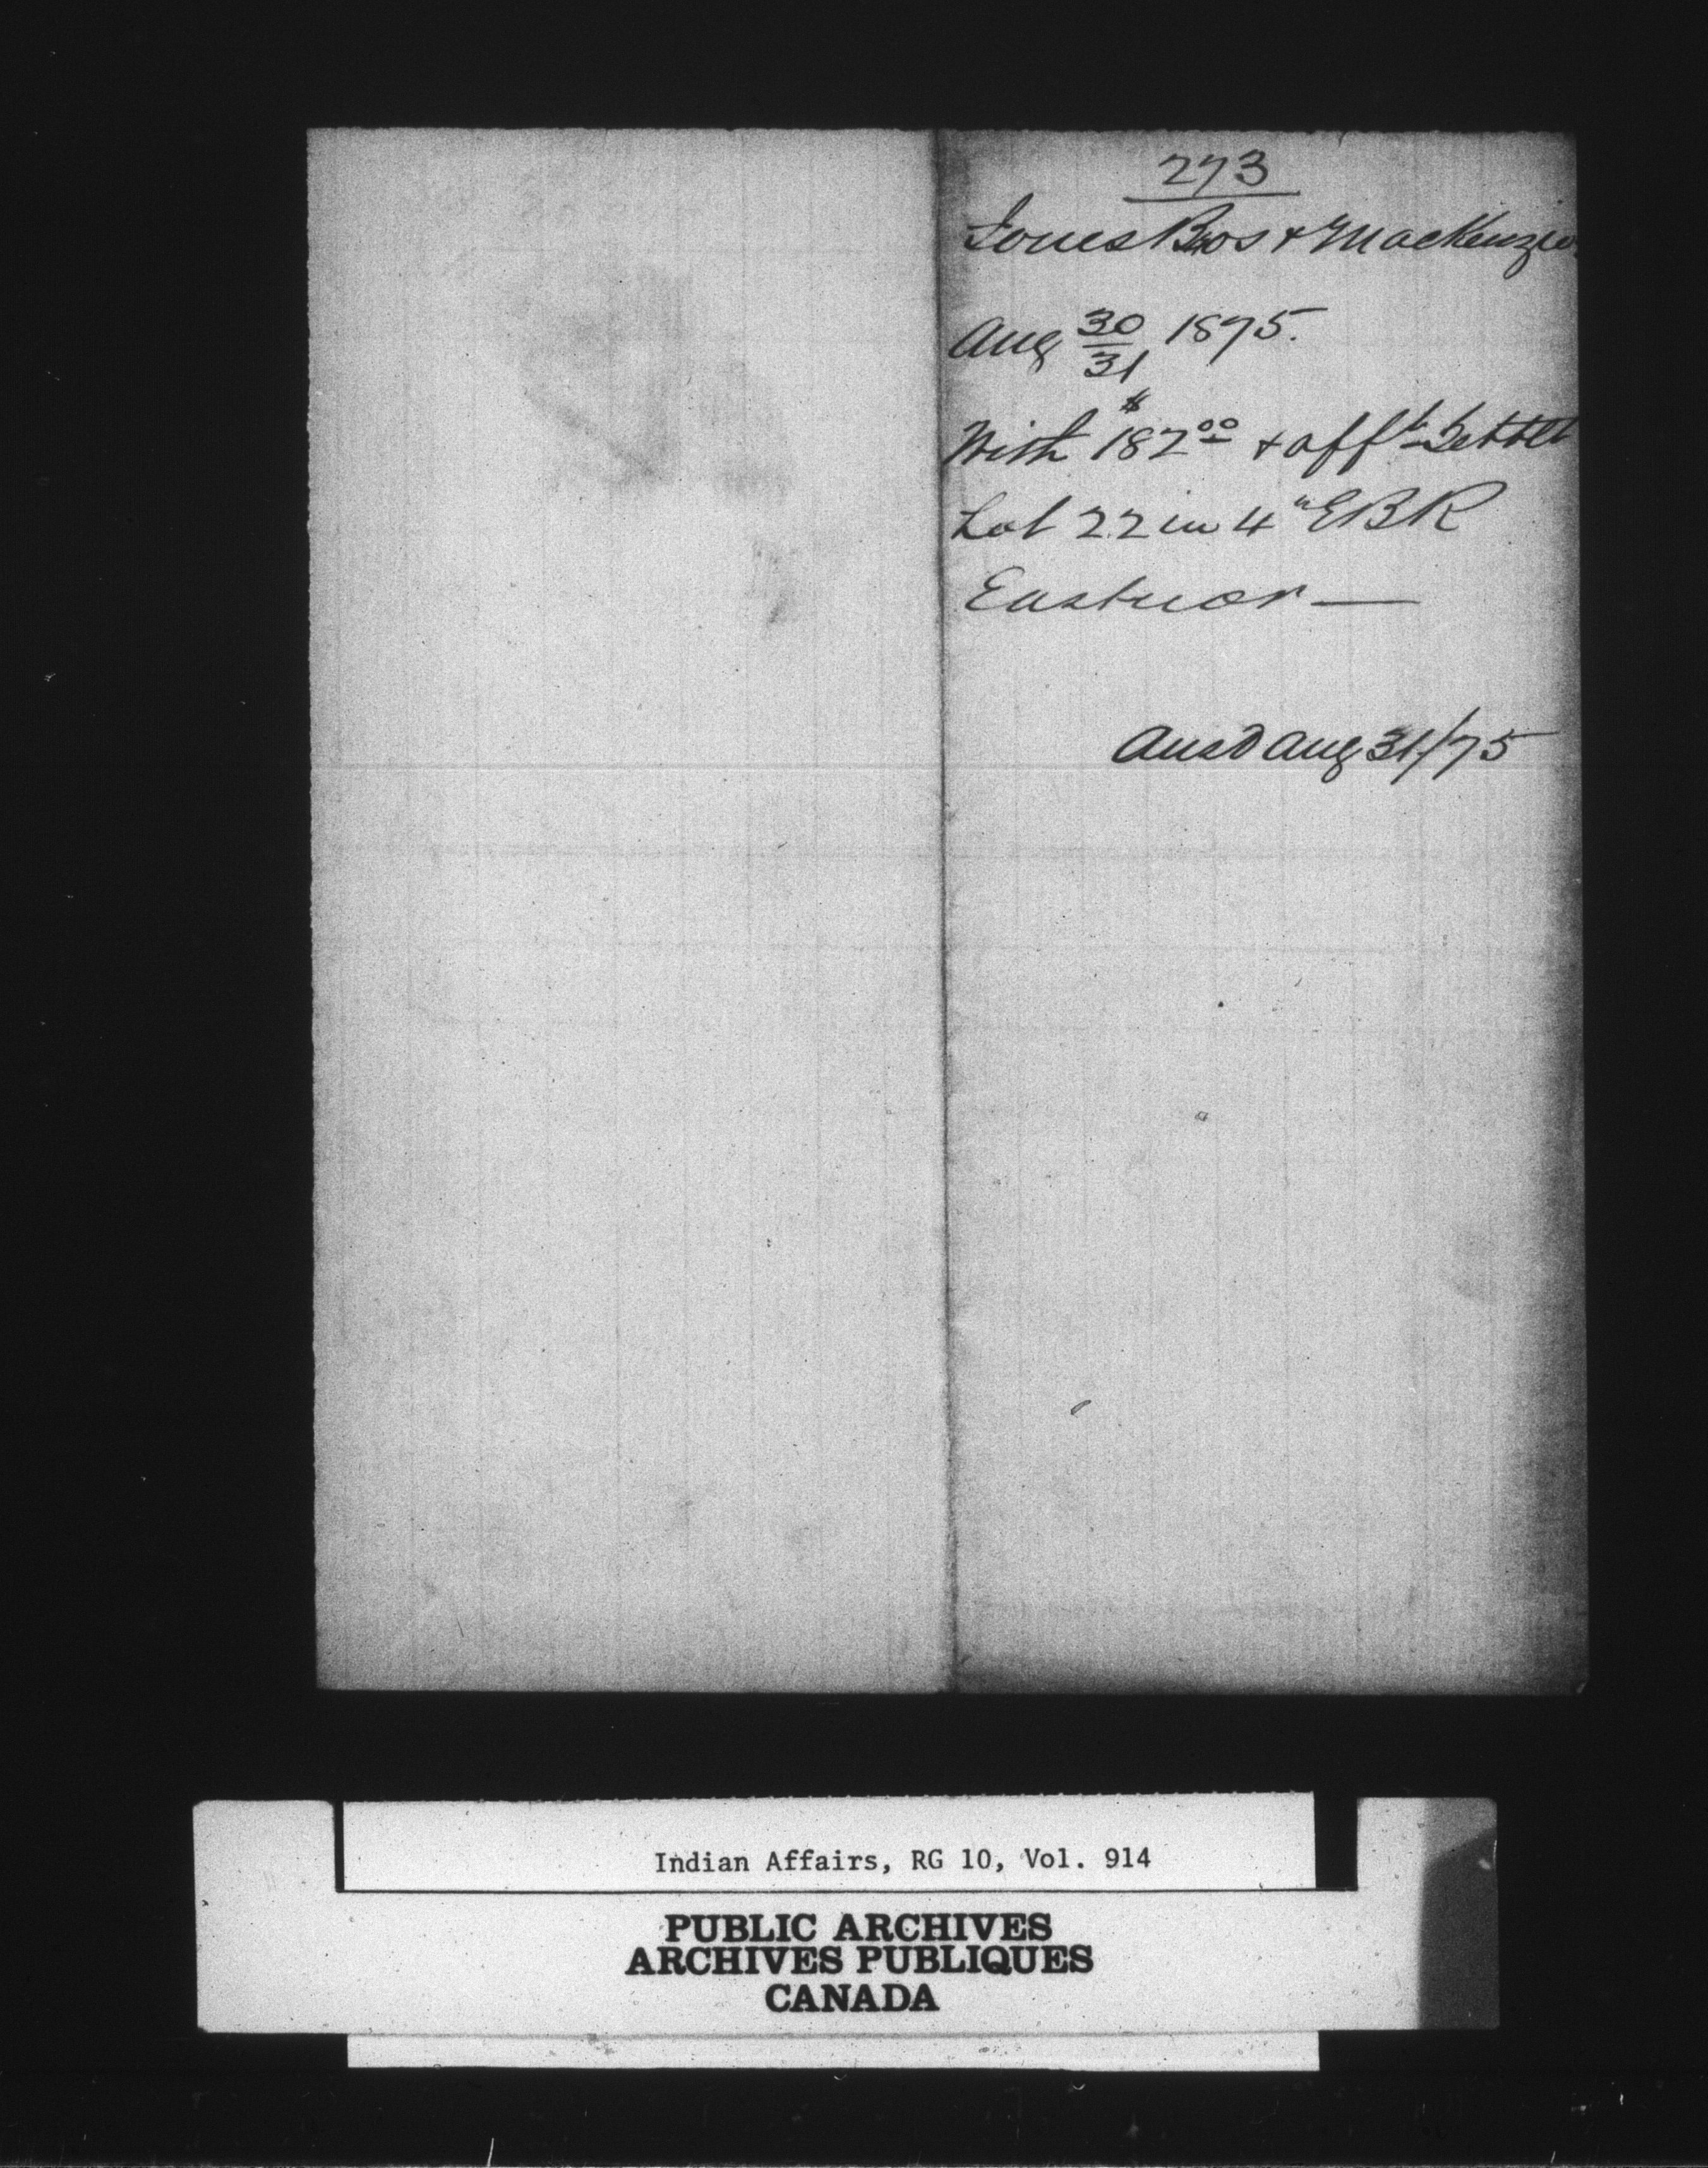 273
Jones Bros & MacKenzie
Aug 30/31 1875.
With $187 00 & afft Settlt
Lot 22 in 4" EBR
Eastnor —
Ansd Aug 31/75
Indian Affairs, RG 10, Vol. 914
PUBLIC ARCHIVES
ARCHIVES PUBLIQUES
CANADA